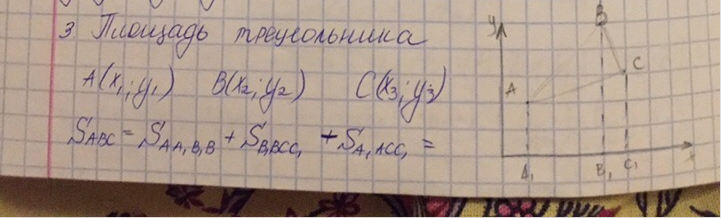 3 Площадь треугольника
A(x₁;y₁) B(x₂;y₂) C(x₃;y₃)
S_ABC = S_AA₁B₁B + S_B₁BCC₁ + S_A₁ACC₁ =
y
B
C
A
x
A₁ B₁ C₁